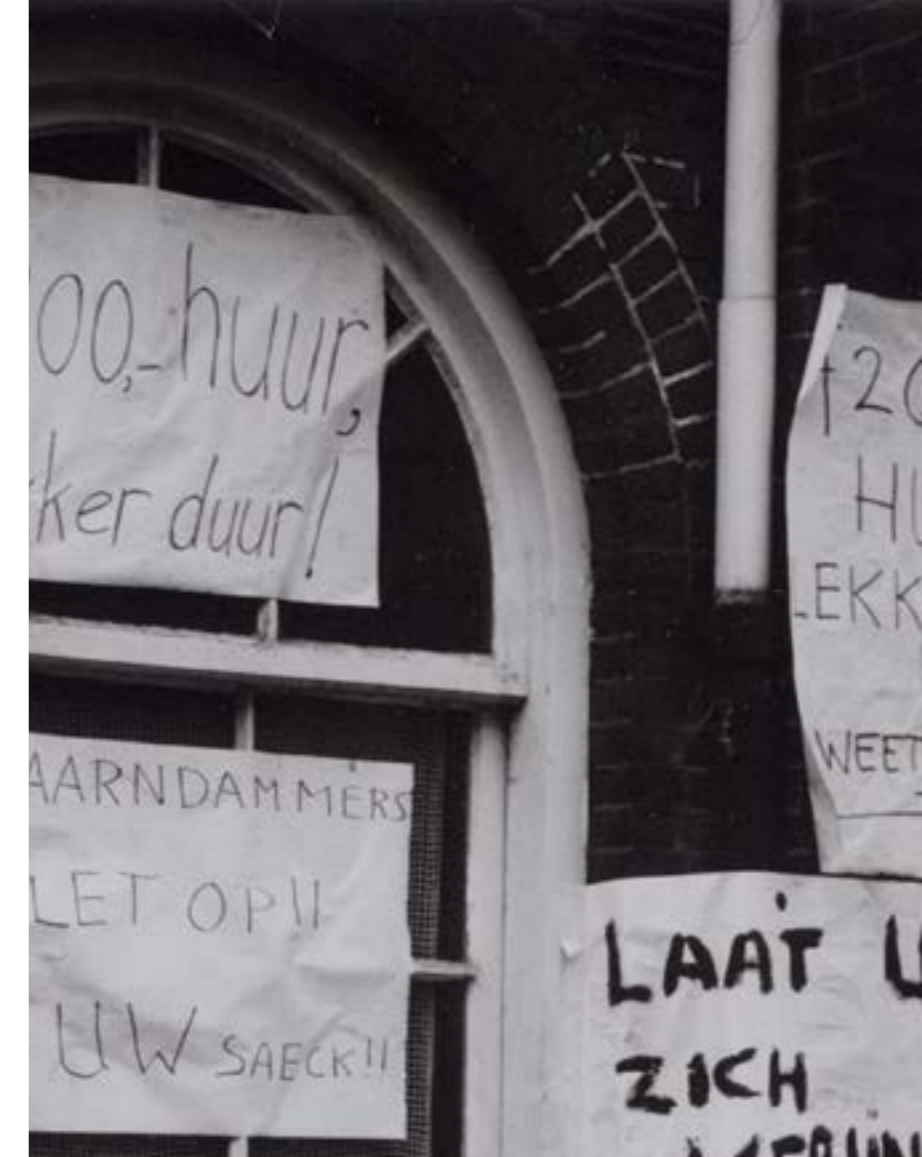 00,- huur,
ker duur!
AARNDAMMERS
LET OP!!
UW SAECK!!
f20
HU
LEKK
WEET
LAAT U
ZICH